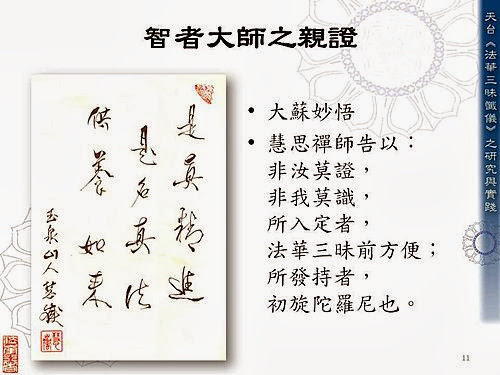 智者大師之親證
是真精進
是名真法
供養如來
玉泉山人
• 大蘇妙悟
• 慧思禪師告以：
非汝莫證，
非我莫識，
所入定者，
法華三昧前方便；
所發持者，
初旋陀羅尼也。
天台《法華三昧懺儀》之研究與實踐
11